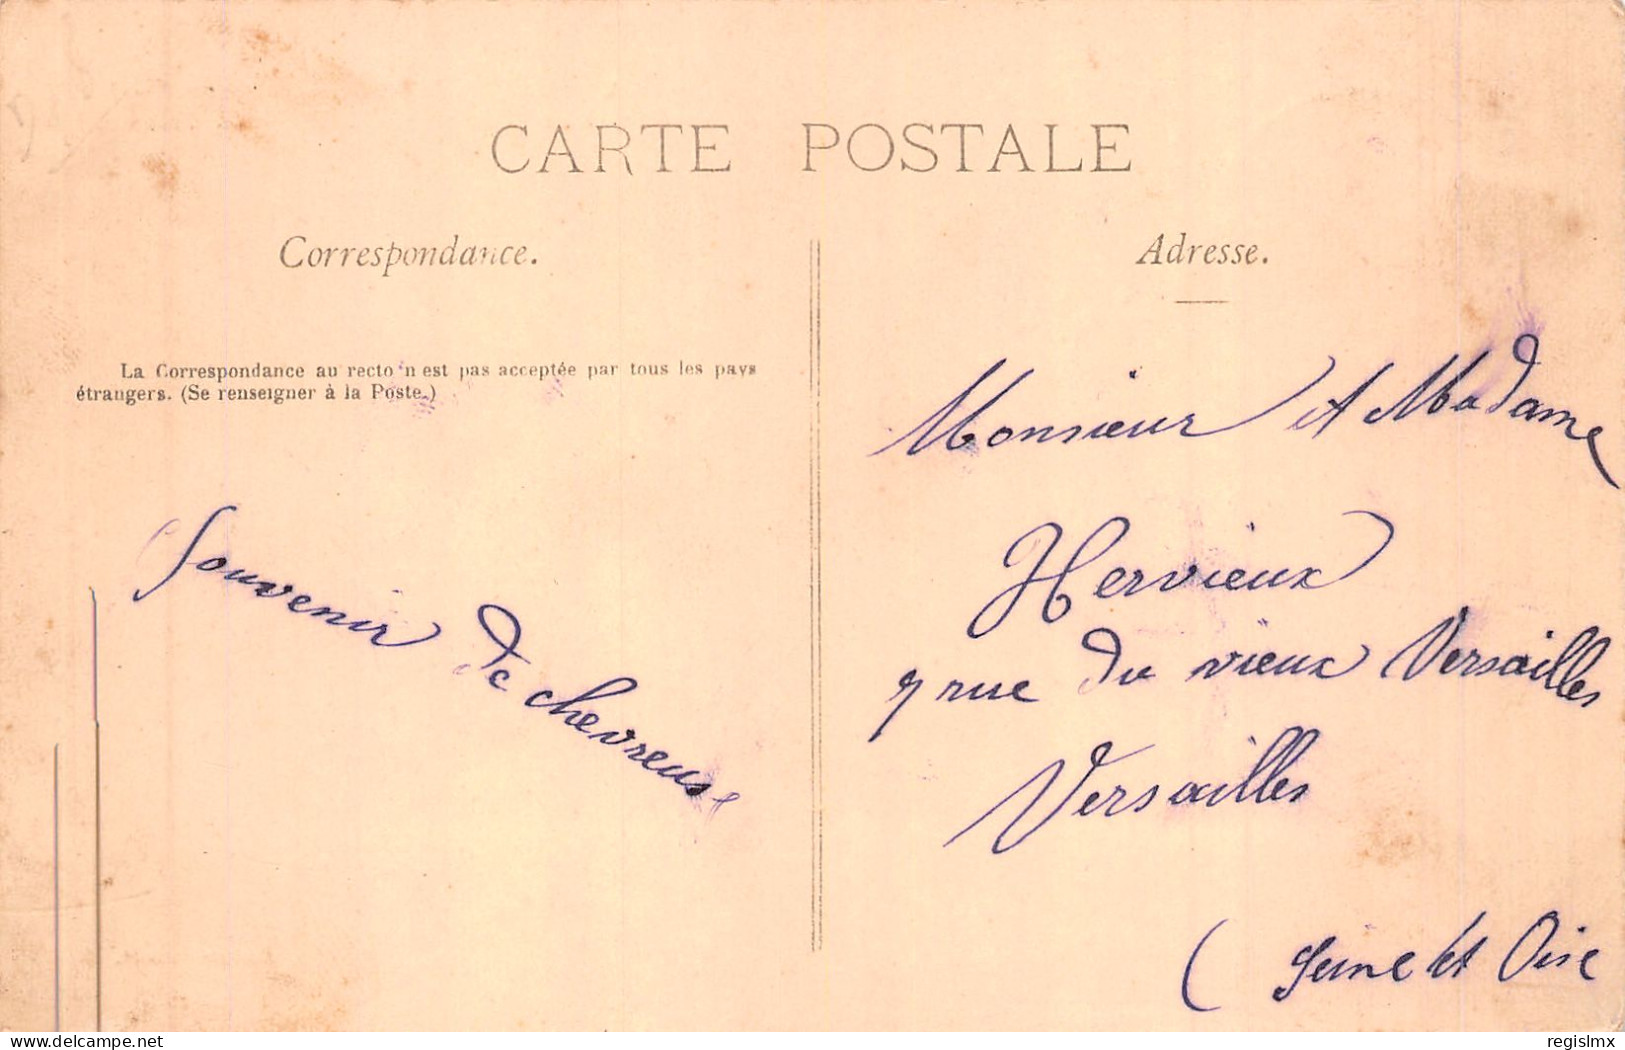 CARTE POSTALE
Correspondance.
Adresse.
La Correspondance au recto n'est pas acceptée par tous les pays
étrangers. (Se renseigner à la Poste.)
Souvenir de chevreuse
Monsieur et Madame
Hervieux
7 rue du vieux Versailles
Versailles
(Seine et Oise
www.delcampe.net
regislmx